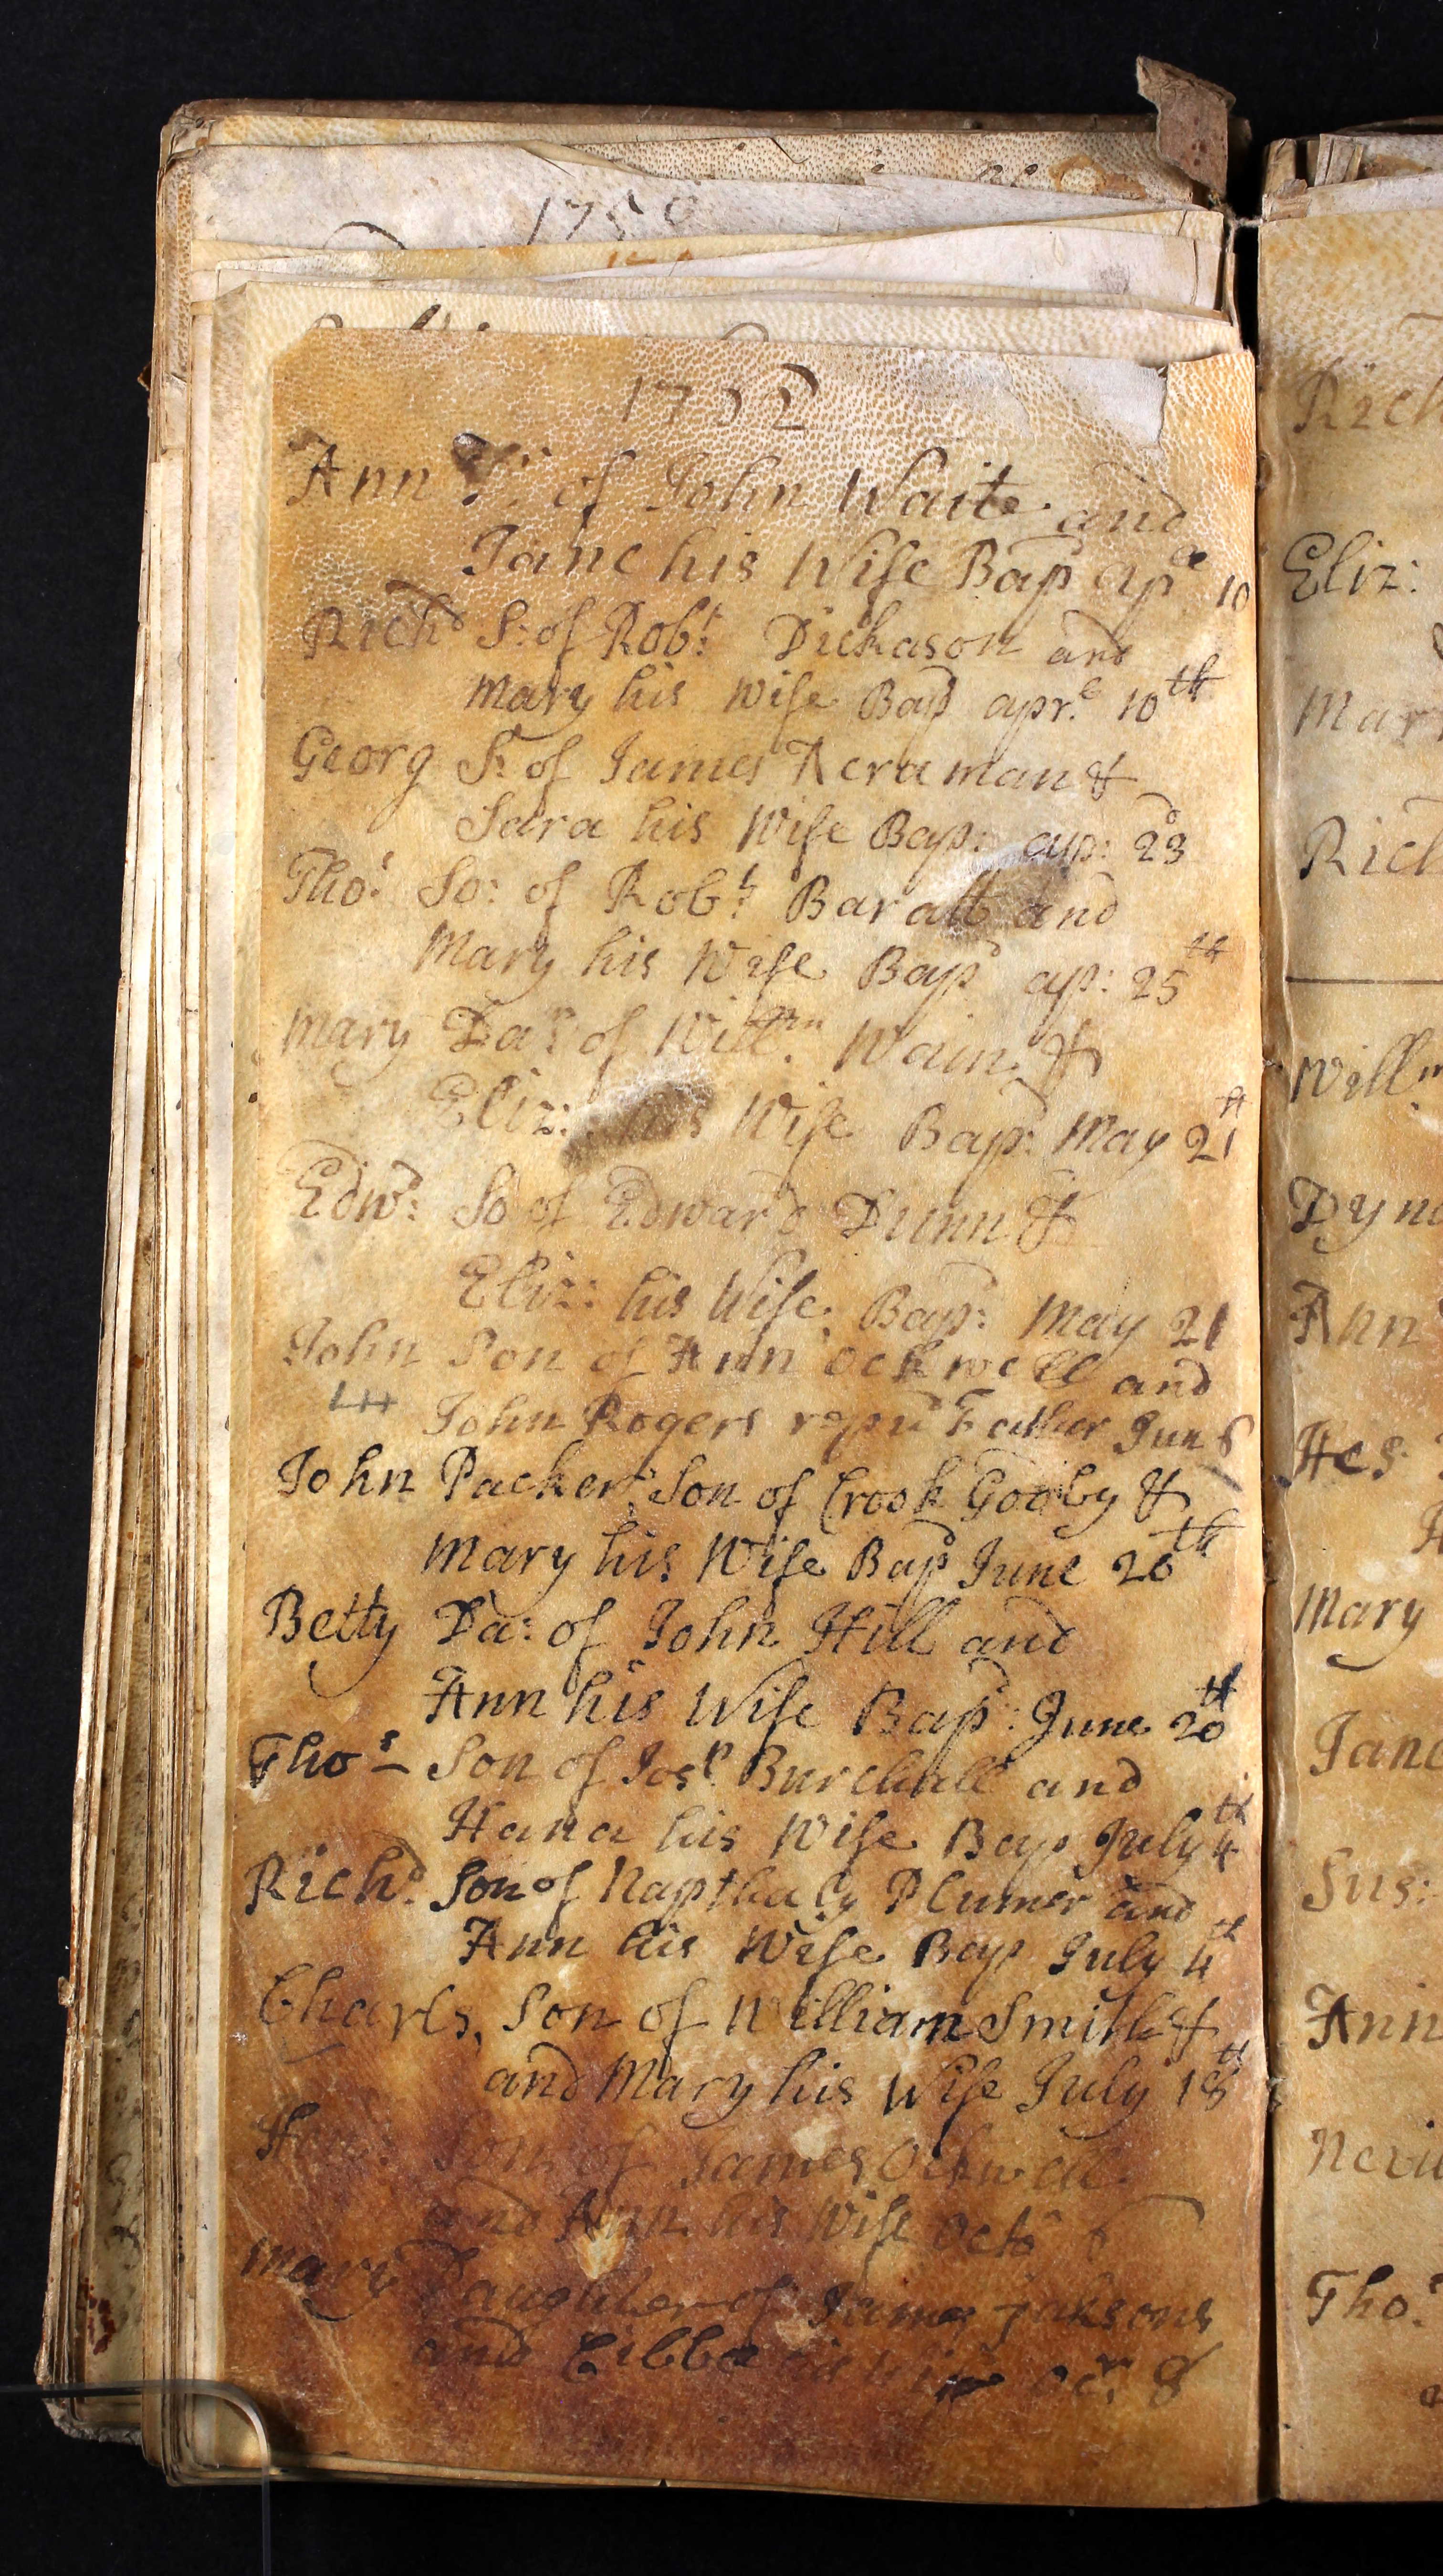 1750
1732
Ann of John Waite and
Jane his Wife Bap ap 10
Richd S: of Robt Dickason and
Mary his Wife Bap apr.e 10th
Georg S: of James Keraman &
Sara his Wife Bap: ap: 23
Tho:s So: of Robt Baratt and
Mary his Wife Bap ap: 25th
Mary Dar of Willm Wain &
Eliz: his Wife Bap: May 21
Edw: So of Edward Dunn &
Eliz: his Wife Bap: May 21
John Son of Ann Ockwell and
John Rogers repud Father Jun 6
John Packer Son of Crook Gooby &
Mary his Wife Bap June 20th
Betty Da: of John Hill and
Ann his Wife Bap: June 20th
Thos – Son of Josp Burchall and
Hana his Wife Bap July 4th
Richd Son of Napthaly Plumer and
Ann his Wife Bap July 4th
Charls Son of William Smith &
and Mary his Wife July 18th
Son of James Ockwell
and Ann his Wife Octo 6
Mary Daughter of James jaksons
and his Wife Oct 8
Rich
Eliz:
Mar
Rich
Willm
Dyn
Ann
Hes
Mary
Jane
Sus:
Ann
Nevil
Tho:s